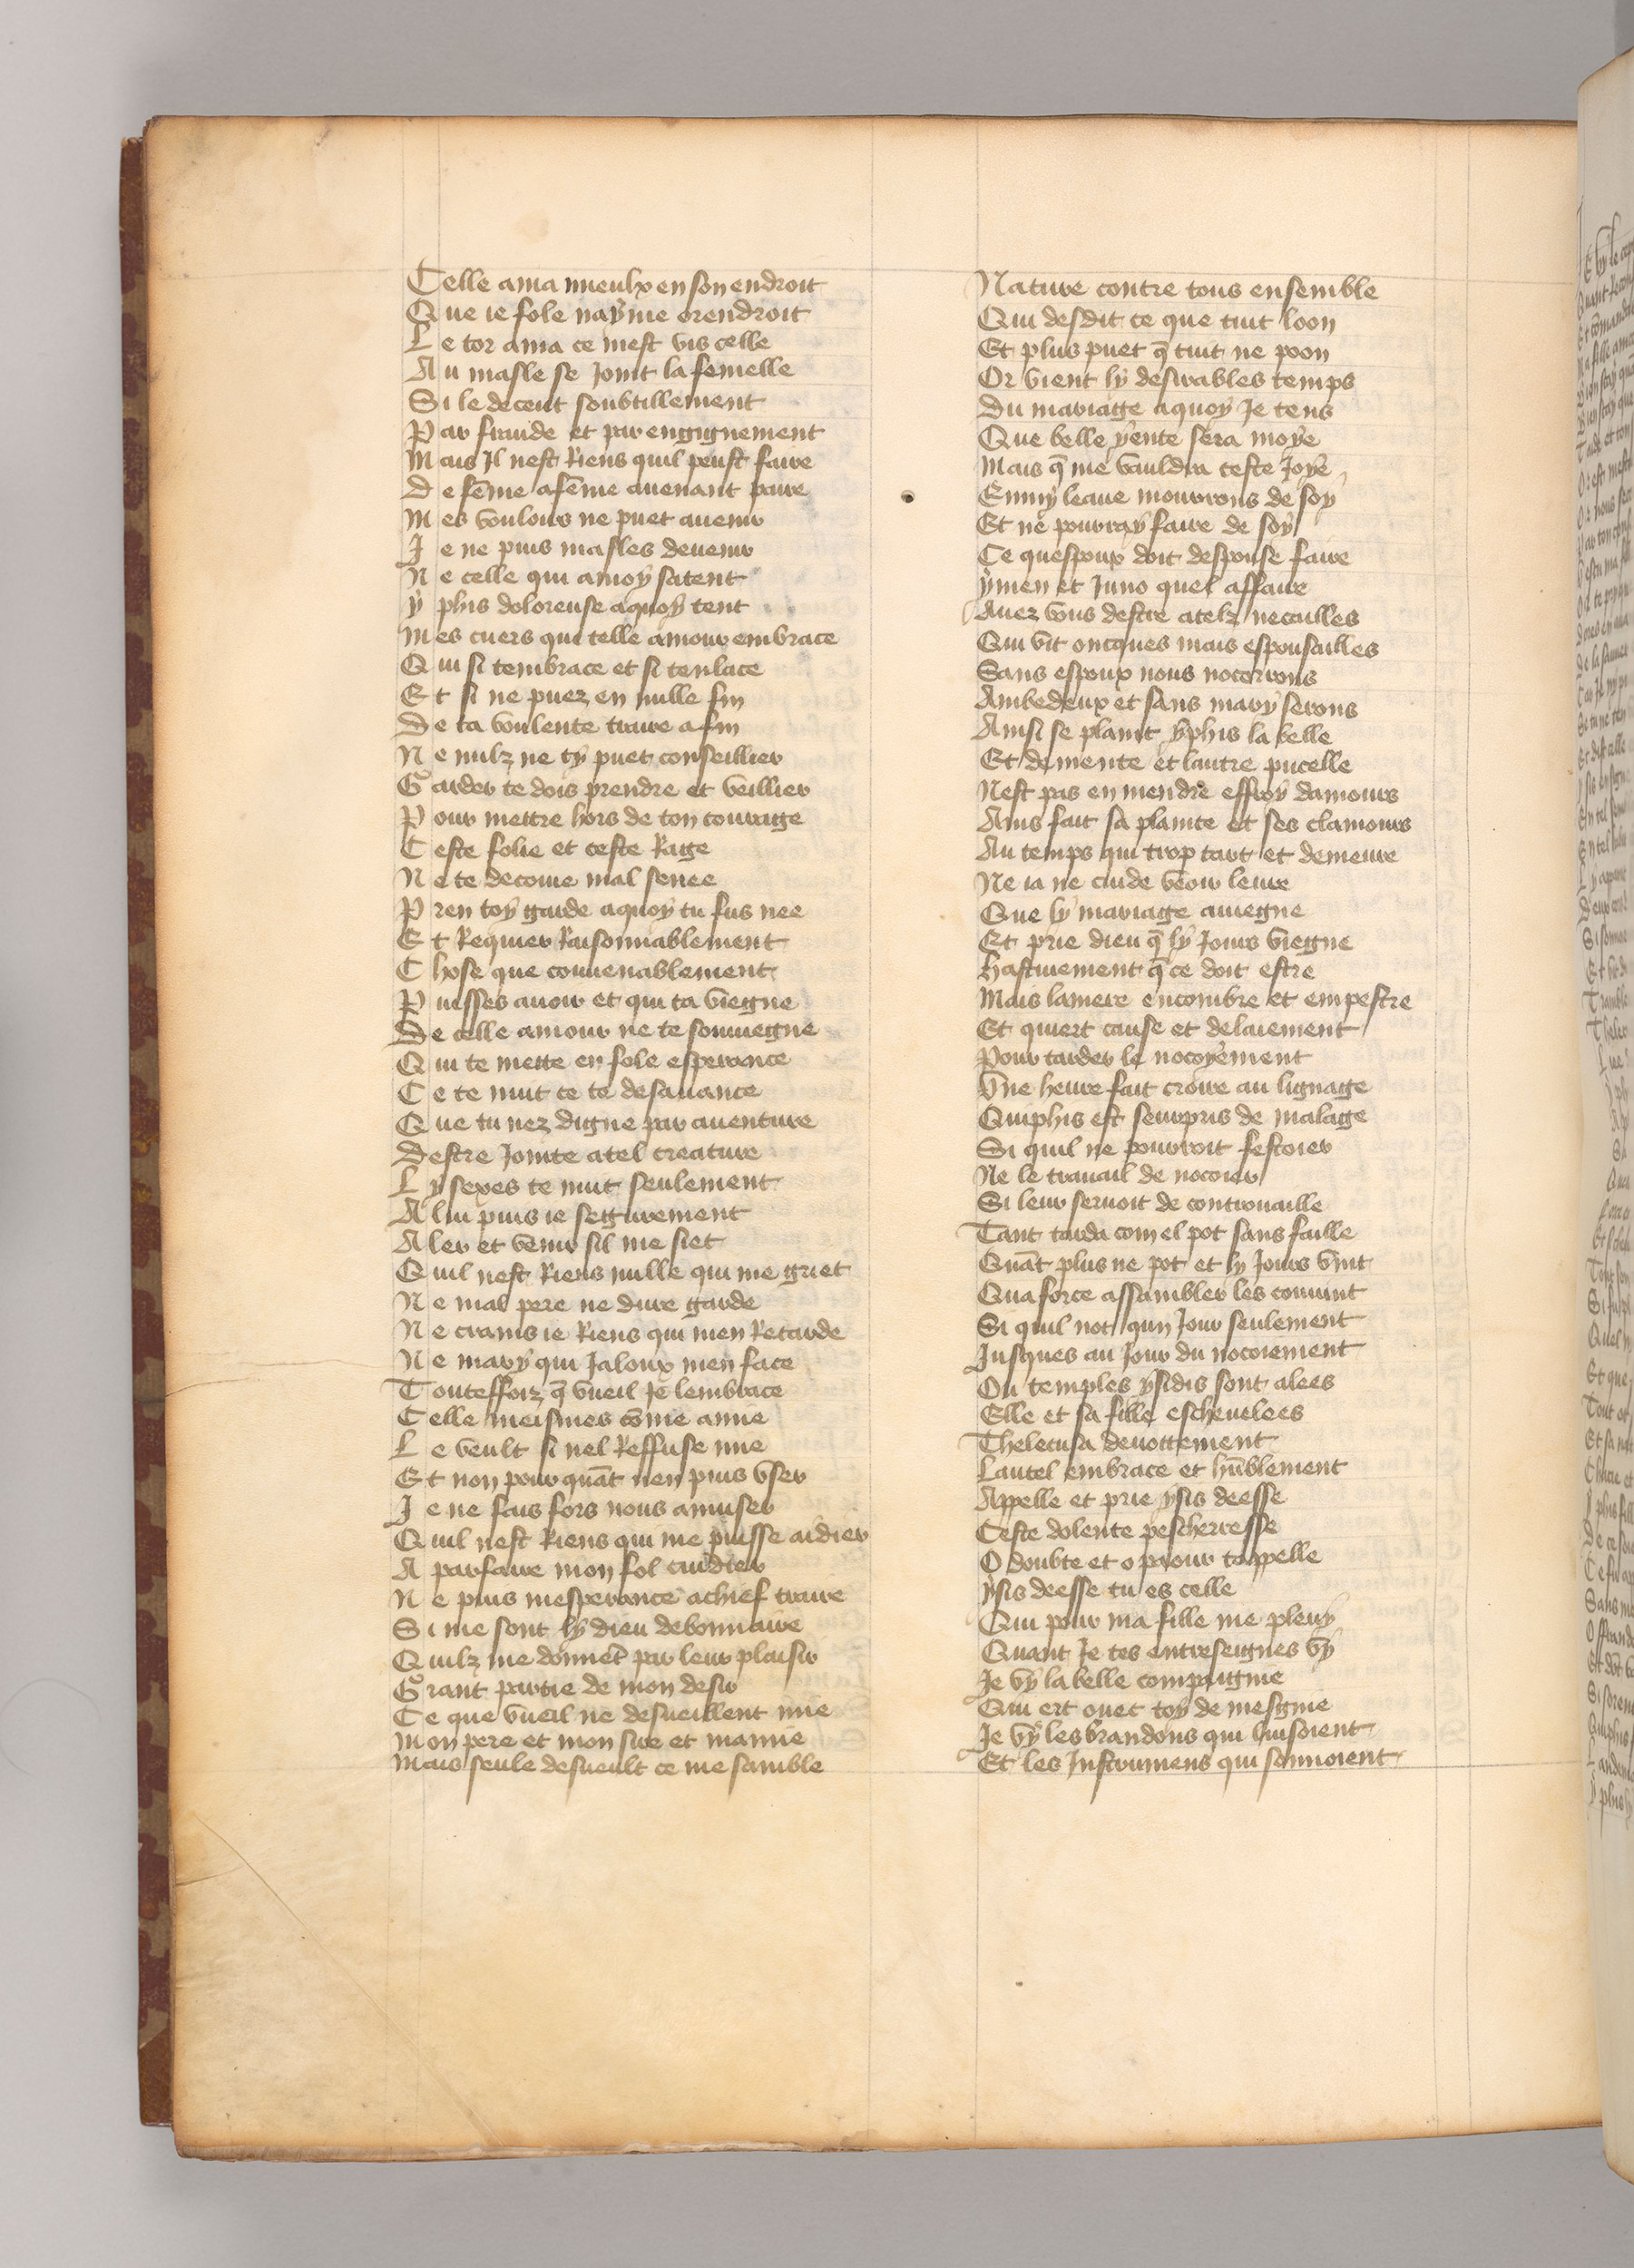 Celle ama mieulx en son endroit
Que ie fole nayme orendroit
Le tor ama ce mest vis celle
Au masle se Joint la femelle
Si le deceut soubtillement
Par fraude et par engignement
Mais Il nest Riens quil peust faire
De fe͞me a fe͞me auenant paire
Mes voulours ne puet auenir
Je ne puis masles deuenir
Ne celle qui a moy satent
yphis doloreuse a quoy tent
Mes cuers qui telle amour embrace
Qui si tembrace et si tenlace
Et si ne puez en nulle fin
De ta voulente traire a fin
Ne nulz ne ty puet conseillier
Garder te dois prendre et veillier
Pour mettre hors de ton courage
Ceste folie et ceste Rage
Ne te decoiue mal senee
Pren toy garde a quoy tu fus nee
Et Requier Raisonnablement
Chose que conuenablement
Puisses auoir et qui ta viegne
De celle amour ne te souuiegne
Qui te mette en fole esperance
Ce te nuit ce te desauance
Que tu nez digne par auenture
Destre Jointe a tel creature
Ly sexes te nuit seulement
A lui puis ie segurement
Aler et venir sil me siet
Quil nest Riens nulle qui me griet
Ne mal pere ne dure garde
Ne crains ie Riens qui men Retarde
Ne mary qui Jaloux men face
Touteffoiz q̄ vueil Je lembrace
Celle meismes co͞me amie
Le veult si nel Reffuse mie
Et non pour quāt nen puis vser
Je ne fais fors nous amuser
Quil nest Riens qui me puisse aidier
A parfaire mon fol cuidier
Ne puis mesperance a chief traire
Si me sont ly dieu debonnaire
Quilz me donnēt par leur plaisir
Grant partie de mon desir
Ce que vueil ne desueillent mie
Mon pere et mon sire et mamie
Mais seule desueult ce me samble
Nature contre tous ensemble
Qui desdit ce que tuit loon
Et plus puet q̄ tuit ne poon
Or vient ly desirables temps
Du mariage a quoy Je tens
Que belle yente sera moye
Mais q̄ me vauldra ceste Joye
Enmy leaue mourrons de soy
Et ne pourray faire de soy
Ce quespoux doit despouse faire
ymen et Juno quel affaire
Auez vous destre a telz necailles
Qui vit oncques mais espousailles
Sans espoux nous nocoirons
Ambedeux et sans mary serons
Ainsi se plaint yphis la belle
Et demente et lautre pucelle
Nest pas en mendre effroy damours
Ains fait sa plainte et ses clamours
Au temps qui trop tart et demeure
Ne ia ne cuide veoir leure
Que ly mariage auiegne
Et prie dieu q̄ ly Jours viegne
Hastiuement q̄ ce doit estre
Mais la mere encombre et empestre
Et quiert cause et delaiement
Pour tarder le nocoyement
Vne heure fait croire au lignage
Quiphis est seurpris de malage
Si quil ne pourroit festoier
Ne le trauail de nocoier
Si leur seruoit de controuaille
Tant tarda com el pot sans faille
Quāt plus ne pot et ly Jours vint
Qua force assambler les conuint
Si quil not qun Jour seulement
Jusques au Jour du nocoiement
Ou temples ysidis sont alees
Elle et sa fille escheuelees
Theletusa deuottement
Lautel embrace et hu͞blement
Appelle et prie ysis deesse
Ceste dolente pescherresse
O doubte et o paour tappelle
ysis deesse tu es celle
Qui pour ma fille me pleuy
Quant Je tes entreseignes vy
Je vy la belle compaignie
Qui ert ouec toy de mesgnie
Je vy les brandons qui luisoient
Et les Instrumens qui sonnoient